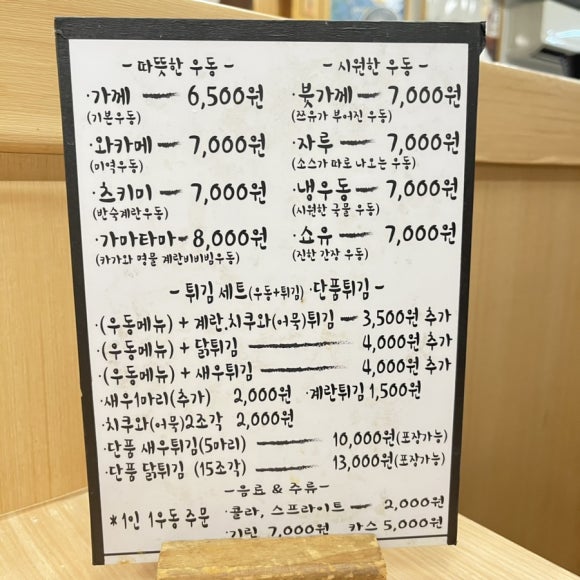 - 따뜻한 우동 -
·가께 — 6,500원
(기본우동)
·와카메 — 7,000원
(미역우동)
·츠키미 — 7,000원
(반숙계란우동)
·가마타마 - 8,000원
(카가와 명물 계란비비빔우동)
- 시원한 우동 -
·붓가께 — 7,000원
(쯔유가 부어진 우동)
·자루 — 7,000원
(소스가 따로 나오는 우동)
·냉우동 — 7,000원
(시원한 국물 우동)
·쇼유 — 7,000원
(진한 간장 우동)
- 튀김 세트(우동+튀김) · 단품튀김 -
·(우동메뉴) + 계란,치쿠와(어묵)튀김 — 3,500원 추가
·(우동메뉴) + 닭튀김 — 4,000원 추가
·(우동메뉴) + 새우튀김 — 4,000원 추가
·새우1마리(추가) 2,000원 ·계란튀김 1,500원
·치쿠와(어묵)2조각 2,000원
·단품 새우튀김(5마리) — 10,000원(포장가능)
·단품 닭튀김 (15조각) — 13,000원(포장가능)
-음료 & 주류-
*1인 1우동 주문
·콜라, 스프라이트 — 2,000원
·기린 7,000원 카스 5,000원